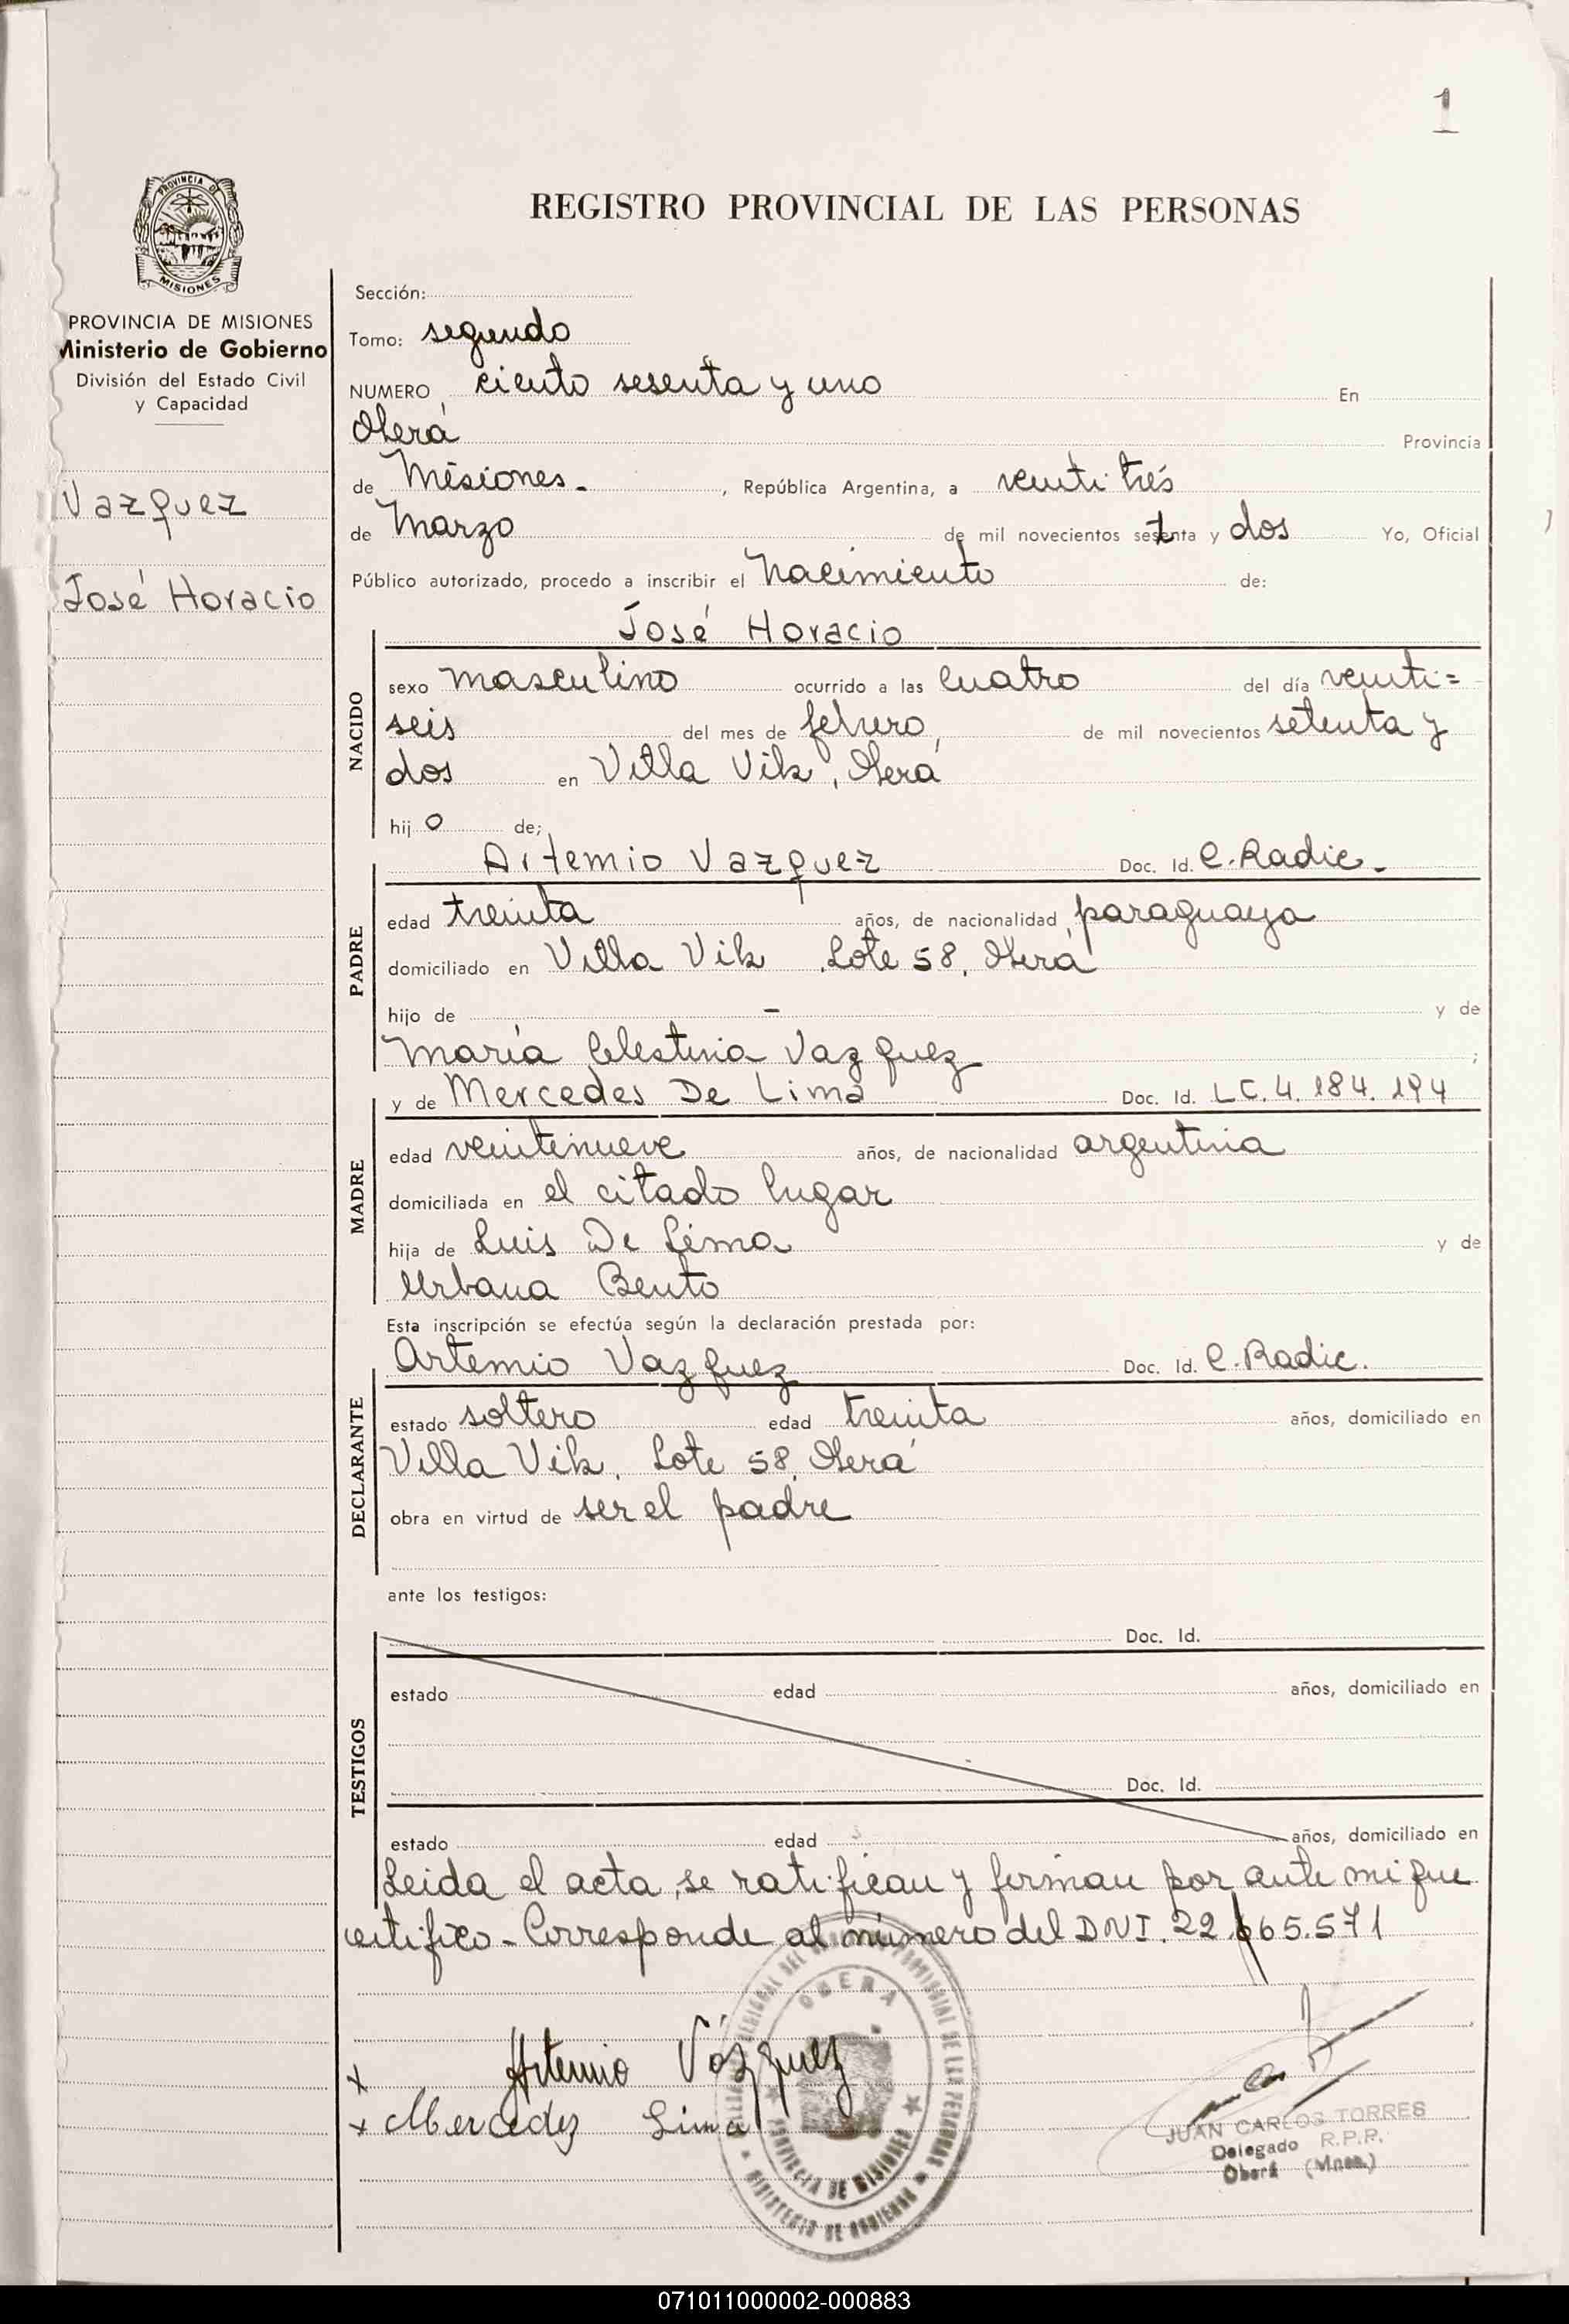 1
PROVINCIA DE
MISIONES
PROVINCIA DE MISIONES
Ministerio de Gobierno
División del Estado Civil
y Capacidad
Vazquez
José Horacio
REGISTRO PROVINCIAL DE LAS PERSONAS
Sección:
Tomo: segundo
NUMERO ciento sesenta y uno En
Oberá Provincia
de Misiones. , República Argentina, a veinti trés
de Marzo de mil novecientos setenta y dos Yo, Oficial
Público autorizado, procedo a inscribir el Nacimiento de:
José Horacio
NACIDO
sexo masculino ocurrido a las cuatro del día veinti=
seis del mes de febrero, de mil novecientos setenta y
dos en Villa Vik, Oberá
hijo de;
Artemio Vazquez Doc. Id. C. Radic.
PADRE
edad treinta años, de nacionalidad paraguaya
domiciliado en Villa Vik Lote 58, Oberá
hijo de - y de
María Celestina Vazquez ;
y de Mercedes De Lima Doc. Id. LC. 4. 184. 194
MADRE
edad veintinueve años, de nacionalidad argentina
domiciliada en el citado lugar
hija de Luis De Lima y de
Urbana Bento
Esta inscripción se efectúa según la declaración prestada por:
Artemio Vazquez Doc. Id. C. Radic.
DECLARANTE
estado soltero edad treinta años, domiciliado en
Villa Vik, Lote 58, Oberá
obra en virtud de ser el padre
ante los testigos:
Doc. Id.
TESTIGOS
estado edad años, domiciliado en
Doc. Id.
estado edad años, domiciliado en
Leida el acta, se ratifican y firman por ante mi que
certifico - Corresponde al número del DNI. 22.665.571
OBERA
PROVINCIA DE MISIONES
MINISTERIO DE GOBIERNO
x Artemio Vázquez
x Mercedez Lima
JUAN CARLOS TORRES
Delegado R.P.P.
Oberá (Mnes.)
071011000002-000883